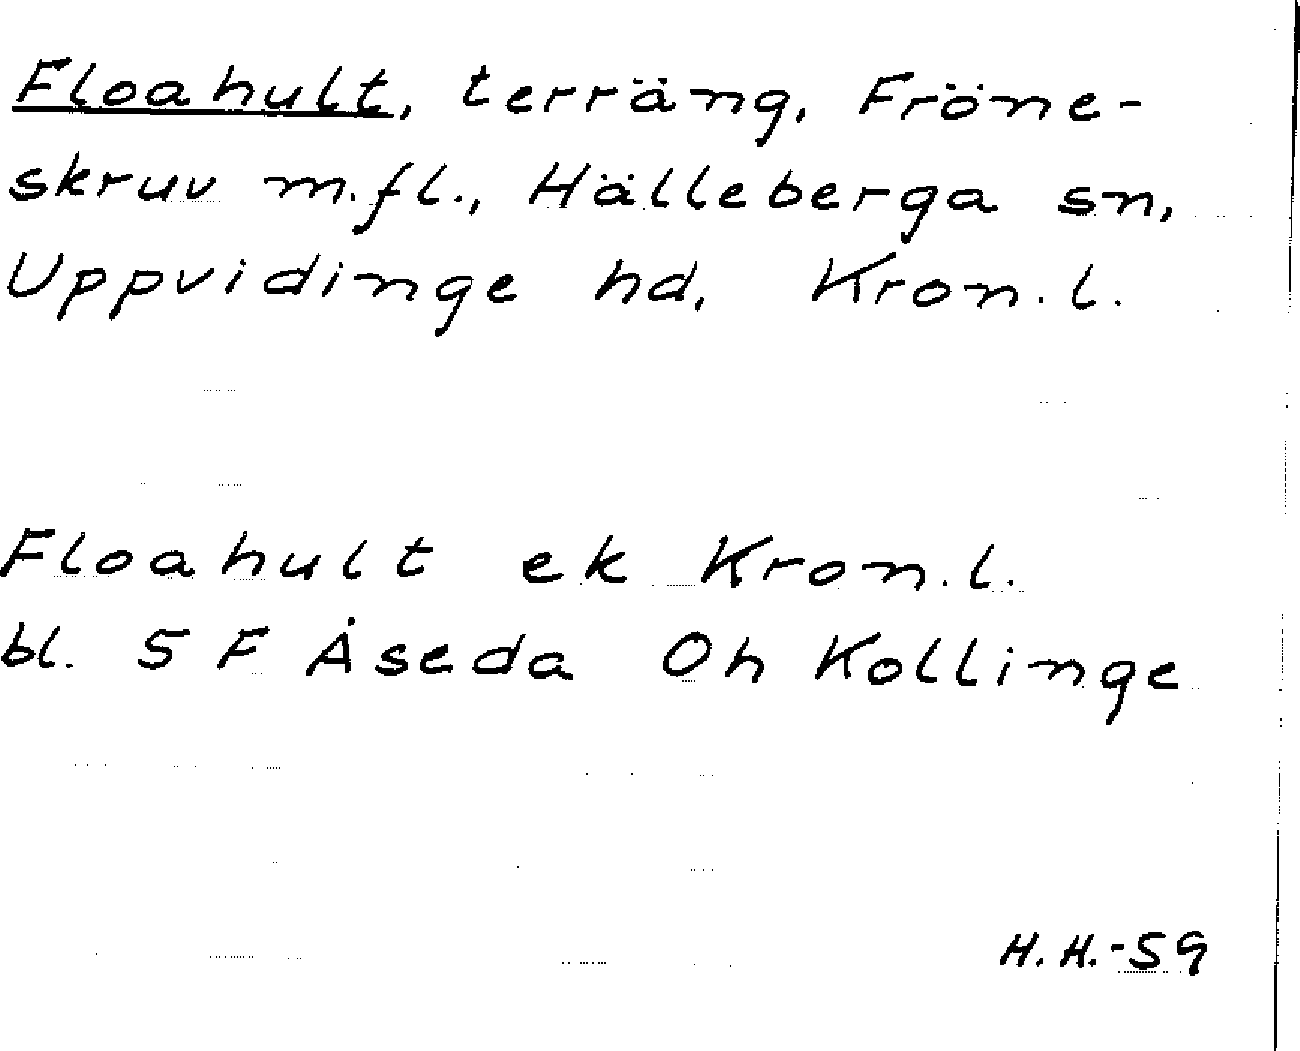 Floahult, terräng, Fröne-
skruv m.fl., Hälleberga sn,
Uppvidinge hd, Kron. l.
Floahult ek Kron. l.
bl. 5 F Åseda Oh Kollinge
H. H.-59